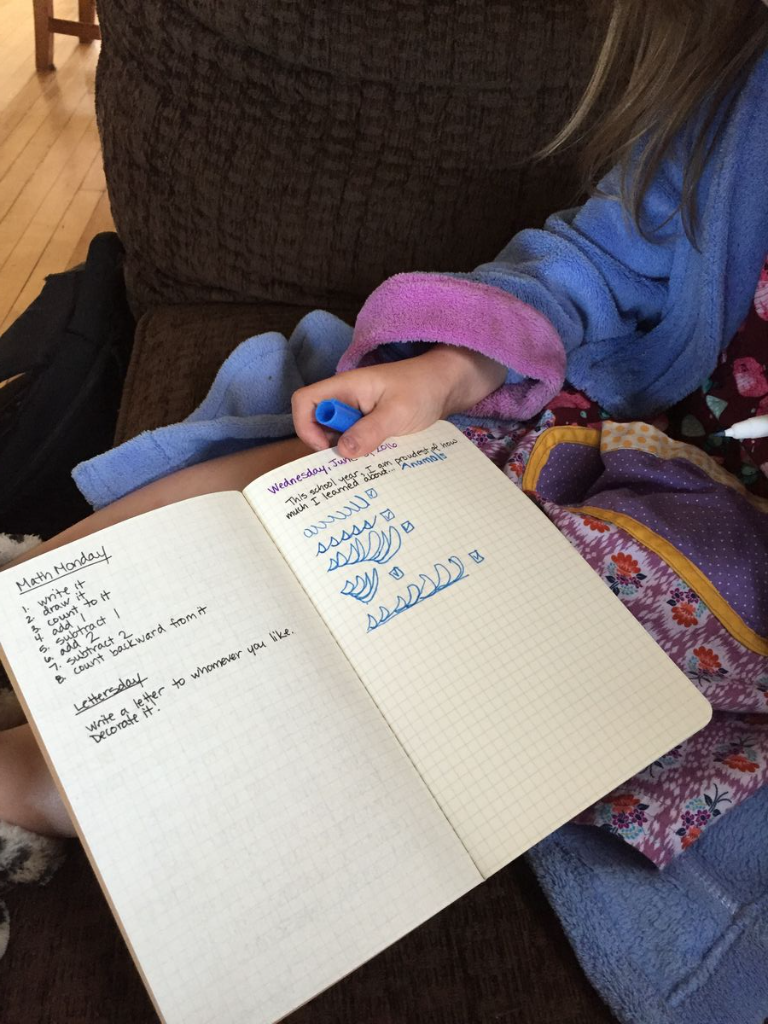 Math Monday
1. write it
2. draw it
3. count to it
4. add 1
5. subtract 1
6. add 2
7. subtract 2
8. count backward from it
Lettersday
Write a letter to whomever you like.
Decorate it!
Wednesday, 2016
This school year, I am proudest of how
much I learned about... Anumals